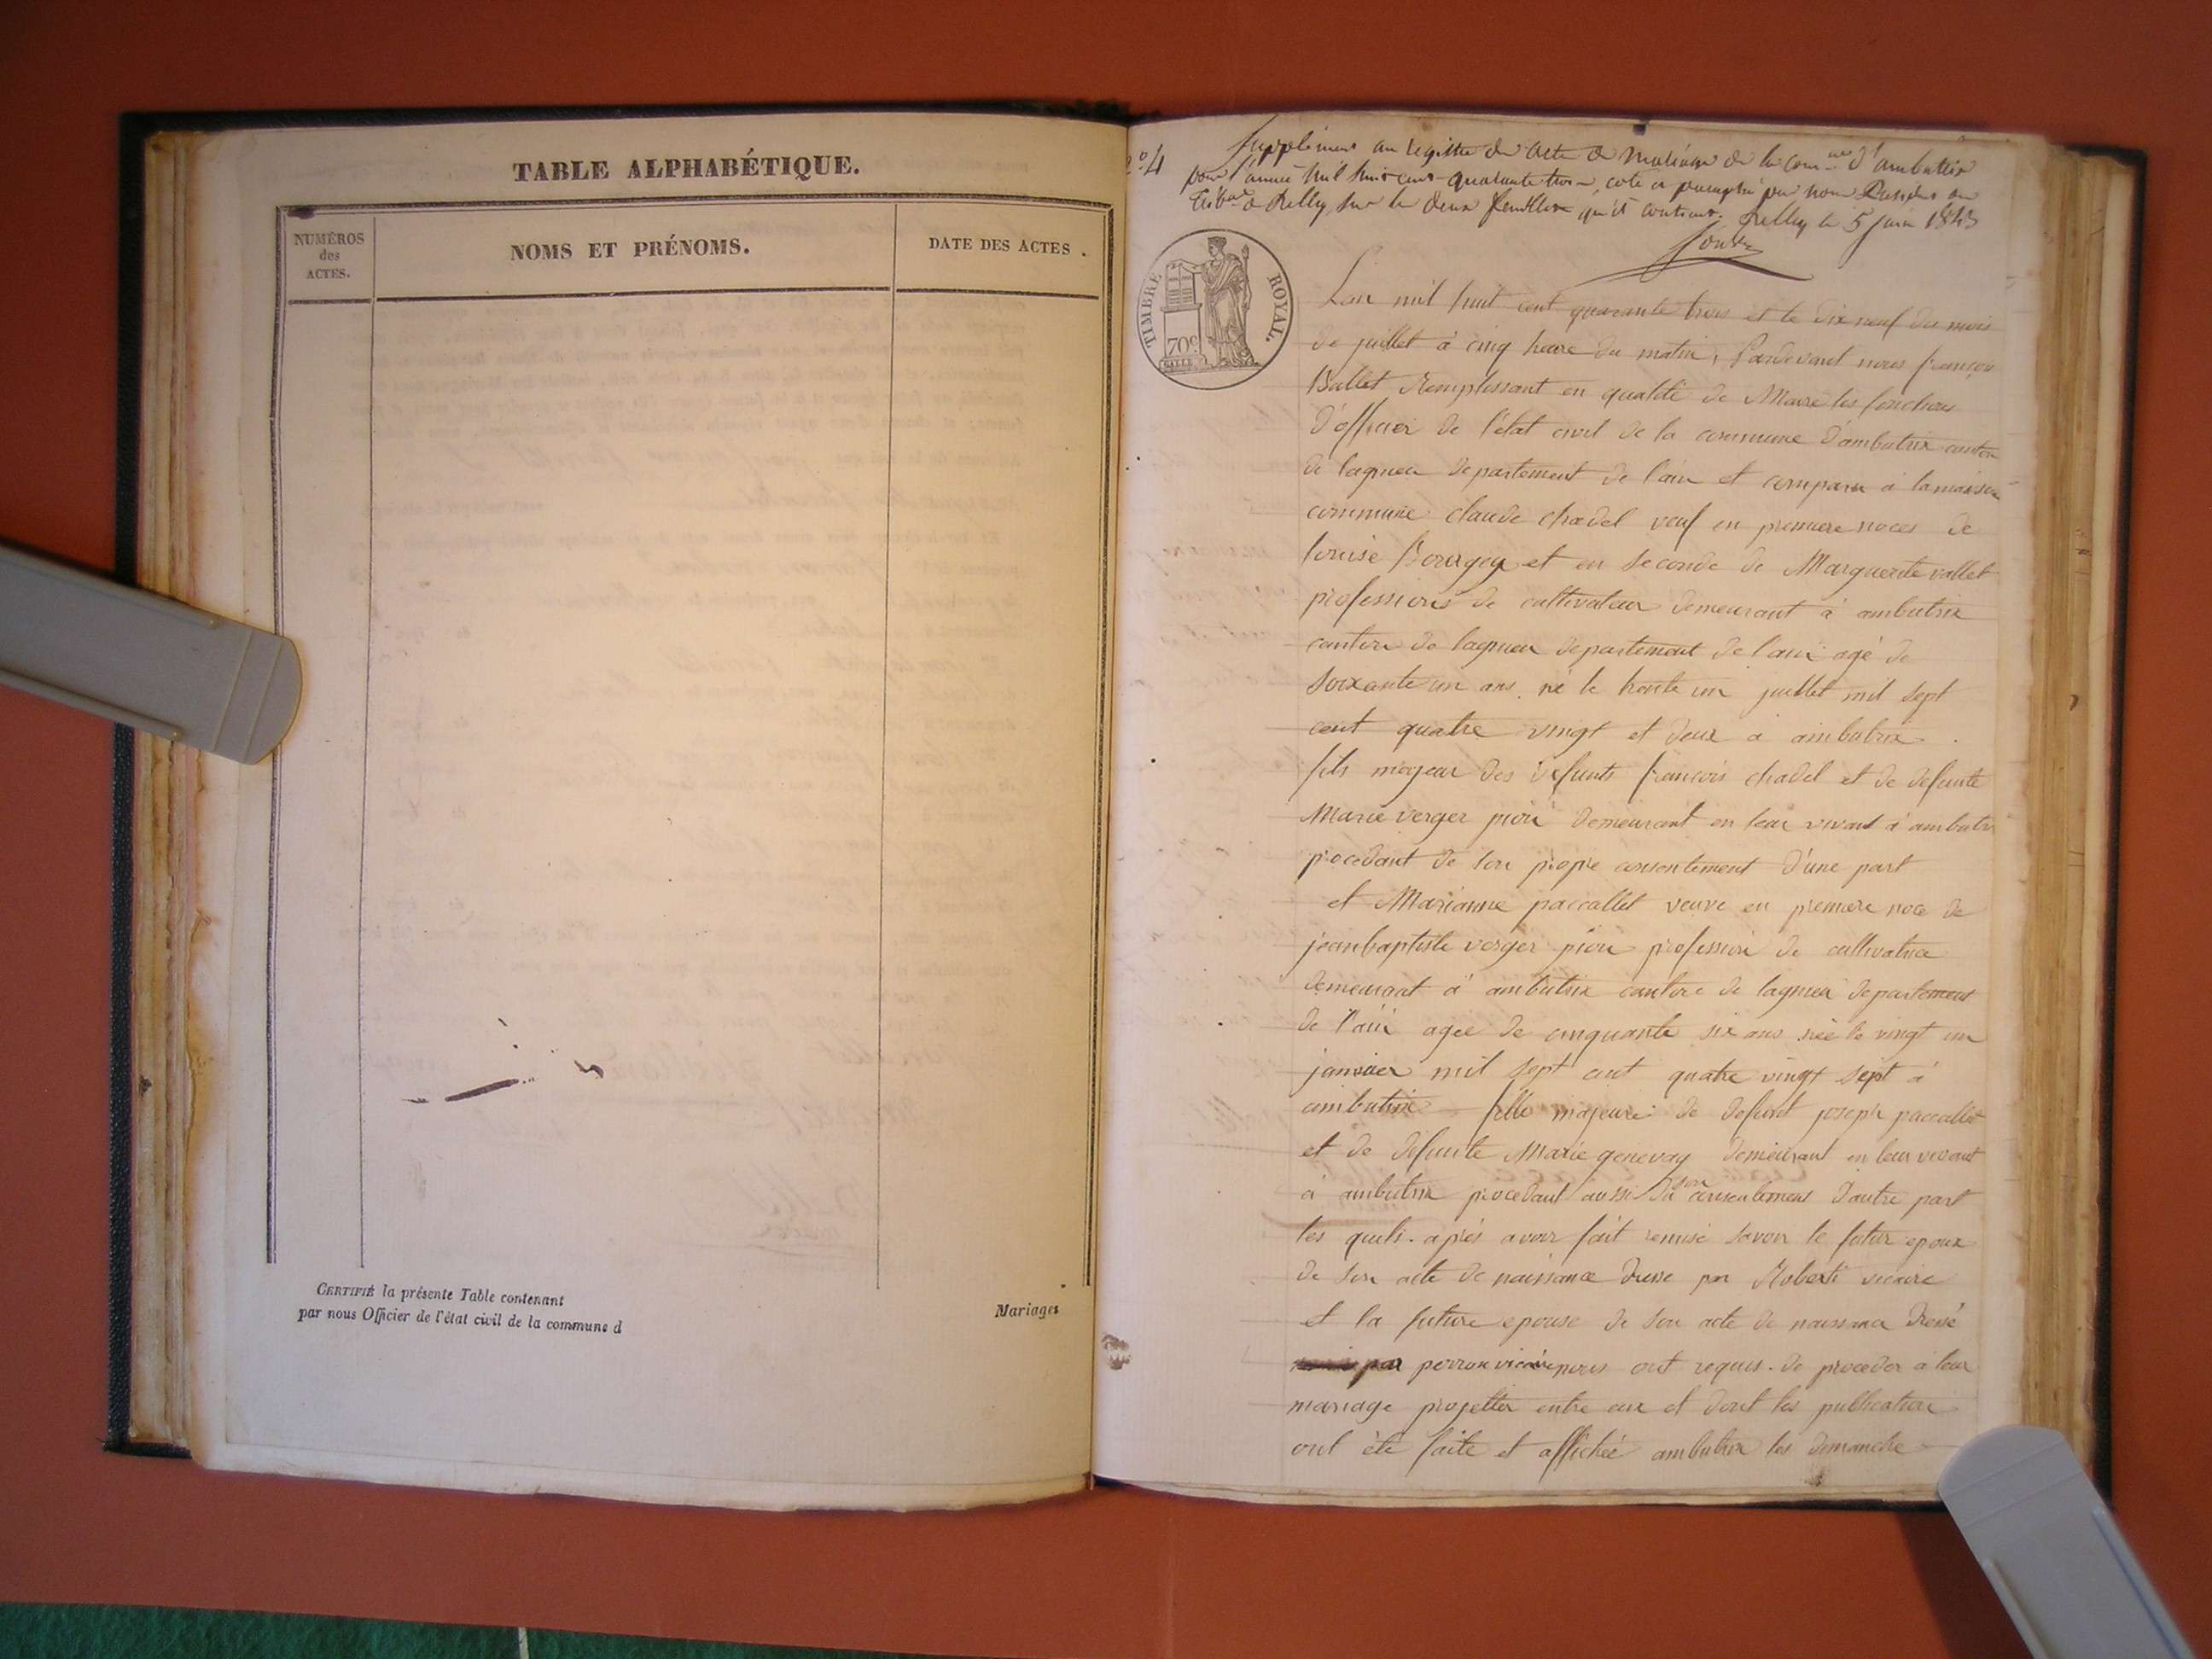 TABLE ALPHABÉTIQUE.
NUMÉROS
des
ACTES.
NOMS ET PRÉNOMS.
DATE DES ACTES.
CERTIFIÉ la présente Table contenant
Mariages
par nous Officier de l'état civil de la commune d
Supplément au registre des actes de mariage de la com.ne d'ambutrix
pour l'année mil huit cent quarante trois, coté et paraphé par nous Président du
de Belley sur les deux feuillets qu'il contient. Belley le 5 juin 1843
TIMBRE
ROYAL
70c
Lan mil huit cent quarante trois et le dix neuf du mois
de juillet à cinq heure du matin, Pardevant nous françois
Ballet Remplissant en qualité de Maire les fonctions
d'officier de l'état civil de la commune d'ambutrix canton
de lagnieu departement de l'ain et comparu à la maison
commune claude chadel veuf en premiere noces de
louise Bourgey et en seconde de Marguerite vallet
professions de cultivateur demeurant à ambutrix
canton de lagnieu departement de l'ain agé de
soixante un ans né le trente un juillet mil sept
cent quatre vingt et deux a ambutrix
fils mageur des defunts francois chadel et de defunte
Marie verger pion demeurant en leur vivant à ambutrix
procedant de son propre consentement d'une part
et Marianne paccallet veuve en premiere noce de
jeanbaptiste verger pion profession de cultivatrice
demeurant à ambutrix canton de lagnieu departement
de l'ain agée de cinquante six ans née le vingt un
janvier mil sept cent quatre vingt sept à
ambutrix fille majeure de defunt joseph paccallet
et de defunte Marie genevay demeurant en leur vivant
à ambutrix procedant aussi de son consentement d'autre part
les quels. après avoir fait remise savoir le futur epoux
de son acte de naissance dressé par Roberti vicaire
et la future epouse de son acte de naissance dressé
par perron vicaire nous ont requis. de proceder a leur
mariage projetter entre eux et dont les publication
ont été faite et affichée ambutrix les dimanche